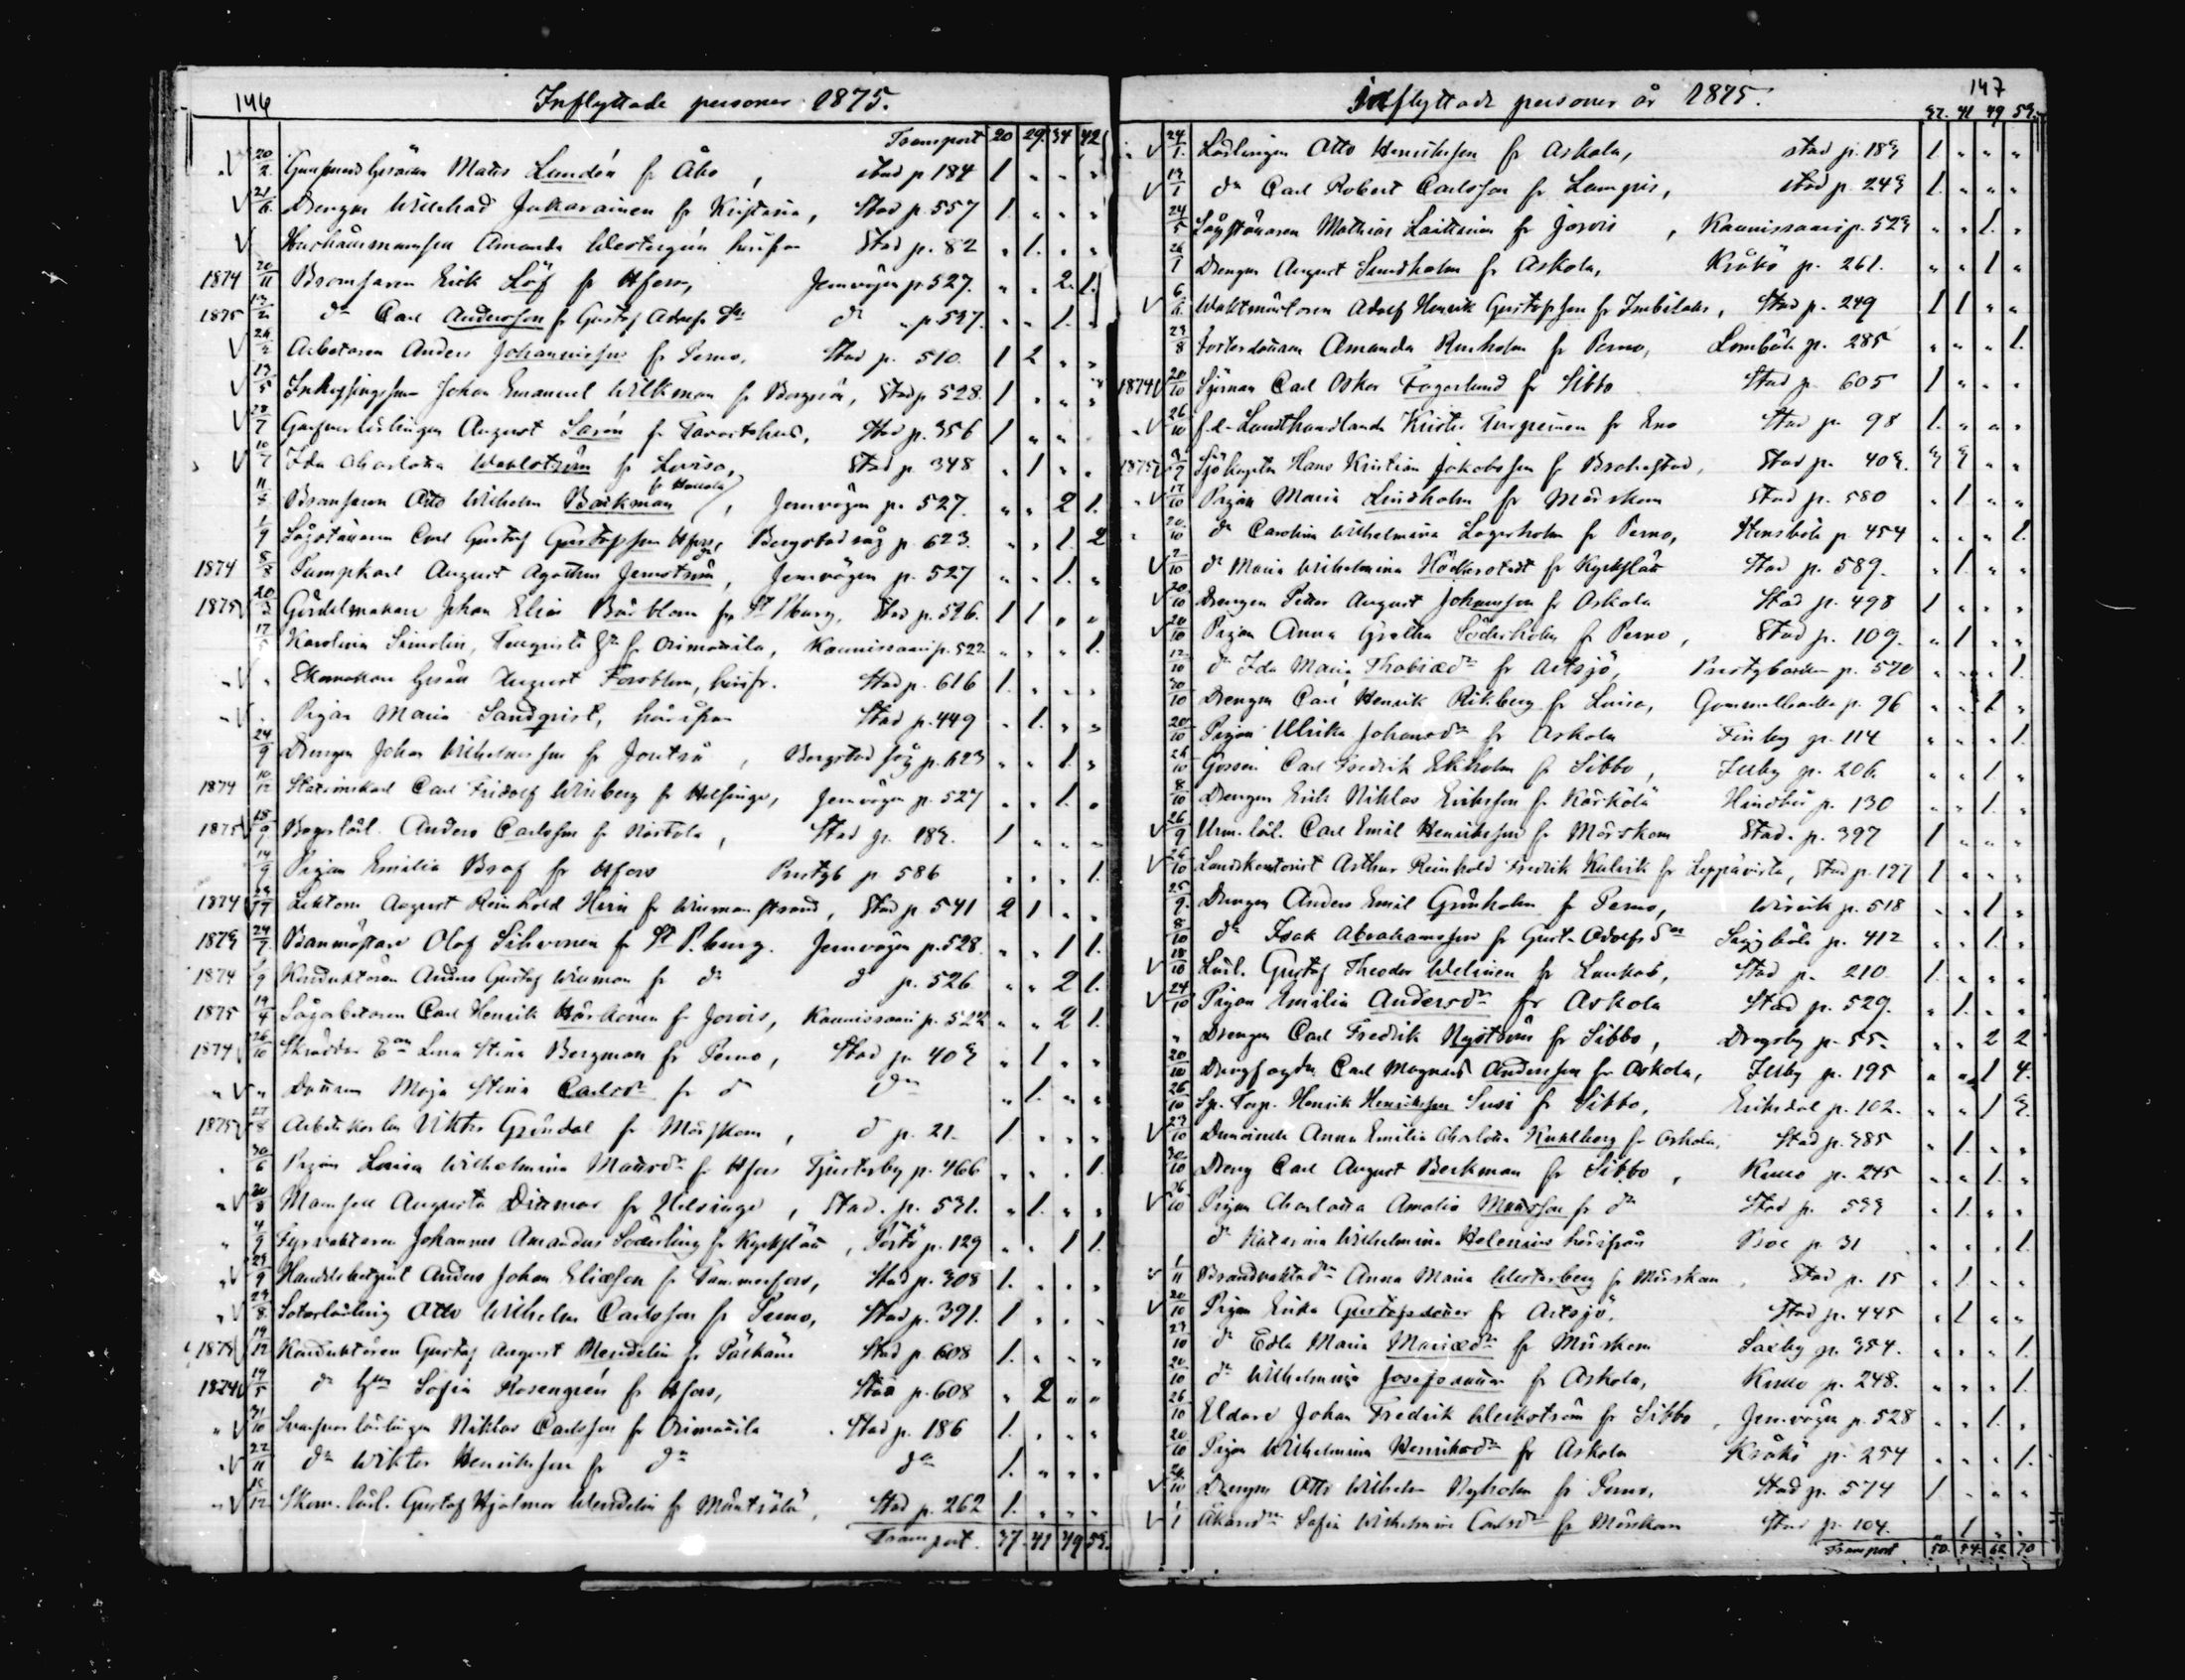 146
Inflyttade personer 1875.
Transport 20 29 34 42
20/2 Mats Lundén fr Åbo, stad p 184 1 " " "
21/6 Drengen Willehad Jukarainen fr Kristina, Stad p. 557 1. " " "
Amanda Westergrén Stad p. 82 " 1. " "
1874 20/11 Bromsaren Erik Löf fr Hfors, Jernvägen p. 527. " " 2. 1.
1875 d:n Carl Andersson fr Gustaf Adolfs d:n " p 537. " " 1. "
Arbetaren Anders Johannesson fr Perno, Stad p. 510. 1 2 " "
13/5 Johan Emanuel Wilkman fr Borgnäs, Stad p 528. 1 " " "
28/7 August Sarén fr Tavastehus, Stad p. 356 1 " "
10/7 Ida Charlotta Wahlström fr Lovisa, Stad p. 348 " 1 " "
Bromsaren Otto Wilhelm Backman fr Hollola, Jernvägen p. 527. " " 2 1.
1/9 Carl Gustaf Gustafsson Hfors, Borgstad såg p. 623. " " 1. 2
1874 8/8 Pumpkarl August Agathon Jernström, Jernvägen p. 527 " " 1. "
1875 Gördelmakare Johan Elias Bärblom fr St Pburg, Stad p. 596. 1 1 " "
17/5 Karolina Simolin, fr Orimattila, Kaunissaari p. 522 " " " 1.
" Skomakare Gesäll August Forsblom, härifr. Stad p. 616 1. " " "
" Pigan Maria Sandqvist, härifrån Stad p. 449 " 1. " "
24/9 Drengen Johan Wilhelmsson fr Jorois, Borgstad såg p. 623 " " 1. "
1874 10/12 Stationskarl Carl Fridolf Winberg fr Helsinge, Jernvägen p. 527 " " 1. "
1875 18/9 Bagarlärl. Anders Carlsson fr Nastola, Stad p. 183. 1 " " "
14/9 Pigan Emilia Brof fr Hfors Prestgb p 586 " " " 1.
1874 Lektorn August Reinhold Hirn fr Wilmanstrand, Stad p 541 2 1 " "
1873 24/7 Banmästare Olof Sihvonen fr St P.burg. Jernvägen p. 528. " " 1 1.
1874 Konduktören Anders Gustaf Wiuman fr d:o d p. 526 " " 2 1.
1875 19/4 Sågarbetaren Carl Henrik Härkönen fr Jorois, Kaunissaari p. 522 " " 2 1.
1874 26/10 Skräddar E:an Lena Stina Bergman fr Perno, Stad p. 403 " 1 " "
" " Dottern Maja Stina Carlsd:r fr d d:n " 1. " "
1875 27/8 Arbetskarlen Viktor Gröndal fr Mörskom, d p. 21. 1 " " "
30/6 Pigan Lovisa Wilhelmina Mattsd:r fr Hfors Tjusterby p. 466 " " " 1.
" 20/8 Mamsell Augusta Dittmar fr Helsinge, Stad. p. 531. " 1. " "
" 4/9 Fyrvaktaren Johannes Amandus Söderling fr Kyrkslätt, p. 129 " " 1 1.
" 29/9 Handelsbetjent Anders Johan Eliasson fr Tammerfors, Stad p. 308 1. " " "
" 23/8 Sotarlärling Otto Wilhelm Carlsson fr Perno, Stad p. 391. 1 " " "
1873 19/12 Konduktören Gustaf August Wendelin fr Pälkäne Stad p. 608 1. " " "
1874 19/5 d:n Sofia Rosengrén fr Hfors, Stad p. 608 " 2 " "
" 31/10 Niklas Carlsson fr Orimattila Stad p. 186 1. " " "
" 22/11 d:n Wiktor Henriksson fr d:n d:n 1. " " "
" 18/12 Skom. lärl. Gustaf Hjalmar Wendelin fr Mäntsälä, Stad p. 262 1. " " "
Transport. 37. 41 49 53.
147
Inflyttade personer år 1875.
37. 41 49 53.
24/1. Lärlingen Otto Henriksson fr Askola, stad p. 183 1. " " "
19/1 d:n Carl Robert Carlsson fr Lampis, stad p. 243 1. " " "
24/5 Mathias Laitinen fr Jorois, Kaunissaari p. 523 " " 1. "
26/1 Drengen August Sundholm fr Askola, Kråkö p. 261. " " 1 "
6/6 Waktmästaren Adolf Henrik Gustafsson fr Imbilaks, Stad p. 249 1 1 " "
23/8 Fosterdottern Amanda Renholm fr Perno, Lomböle p. 285 " " " 1.
1874 20/10 Carl Oskar Fagerlund fr Sibbo Stad p. 605 1 " " "
26/10 f.d. Landthandlande Krister Turpeinen fr Eno Stad p. 98 1. " " "
1875 Sjökapten Hans Kristian Jakobsson fr Brahestad, Stad p. 403. 3 3 " "
17/10 Pigan Maria Lindholm fr Mörskom Stad p. 580 " 1 " "
20/10 d:n Carolina Wilhelmina Lagerholm fr Perno, Stensböle p. 454 " " " 1.
2/10 d:n Maria Wilhelmina Höckerstedt fr Kyrkslätt Stad p. 589. " 1. " "
20/10 Drengen Petter August Johansson fr Askola Stad p. 498 1 " " "
20/10 Pigan Anna Gretha Söderholm fr Perno, Stad p. 109. " 1 " "
12/10 d:n Ida Maria Thobiasd:r fr Artsjö, Prestgården p. 570 " " " 1.
30/10 Drengen Carl Henrik Rikberg fr Lovisa, Gammelbacka p. 96 " " 1 "
20/10 Pigan Ulrika Johansd:r fr Askola Finby p. 114 " " " 1.
26/10 Gossen Carl Fredrik Ekholm fr Sibbo, Illby p. 206. " " 1 "
8/10 Drengen Erik Niklas Eriksson fr Kärkölä Hindhår p. 130 " " 1. "
26/9 Urm. lärl. Carl Emil Henriksson fr Mörskom Stad. p. 397 1 " " "
26/10 Landskontorist Arthur Reinhold Fredrik Kulvik fr Leppävirta, Stad p. 197 1 " " "
25/9. Drengen Anders Emil Grönholm fr Perno, Wirvik p. 518 " " 1. "
8/10 d:n Isak Abrahamsson fr Gust. Adolfs d:n p. 412 " " 1. "
18/10 Lärl. Gustaf Theodor Welinen fr Laukas, Stad p. 210 1. " " "
24/10 Pigan Emilia Andersd:r fr Askola Stad p. 529. " 1. " "
" Drengen Carl Fredrik Nyström fr Sibbo, Drägsby p. 55. " " 2 2
20/10 Carl Magnus Andersson fr Askola, Illby p. 195 " " 1 4.
26/10 Sp. Torp. Henrik Henriksson Susi fr Sibbo, Eriksdal p. 102. " " 1 3.
23/10 Anna Emilia Charlotta Kuhlberg fr Askola, Stad p. 385 " 1. " "
30/10 Dreng Carl August Berkman fr Sibbo, Kullo p. 245 " " 1. "
26/10 Pigan Charlotta Amalia Mattsson fr d:n Stad p. 533 " 1. " "
d:n Katarina Wilhelmina Helenius härifrån Boe p. 31 " " " 1.
1/11 Brandvaktsd:n Anna Maria Westerberg fr Mörskom, Stad p. 15 " 1. " "
20/10 Pigan Erika Gustafsdotter fr Artsjö, Stad p. 445 " 1 " "
23/10 d:n Edla Maria Mariaed:r fr Mörskom Saxby p. 354. " " " 1.
20/10 d:n Wilhelmina Josefsdotter fr Askola, Kullo p. 248. " " " 1.
26/10 Eldare Johan Fredrik Weckström fr Sibbo, Jernvägen p. 528 " " 1. "
20/10 Pigan Wilhelmina Henriksd:r fr Askola Kråkö p. 254 " " " 1.
24/10 Drengen Otto Wilhelm Nyholm fr Perno, Stad p. 574 1 " " "
1/1 Sofia Wilhelmina Carlsd:r fr Mörskom Stad p. 104. " 1 " "
Transport 50. 54. 62 70